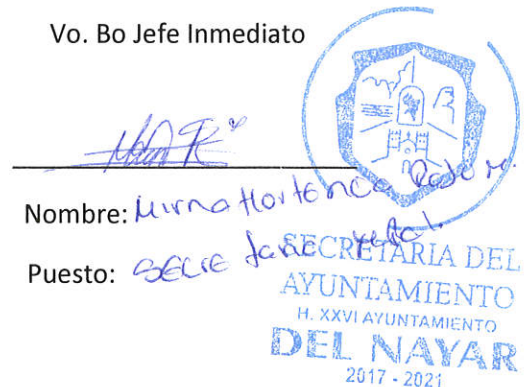 Vo. Bo Jefe Inmediato
Nombre: Mirna Hortencia
Puesto:
SECRETARIA DEL
AYUNTAMIENTO
H. XXVI AYUNTAMIENTO
DEL NAYAR
2017 - 2021